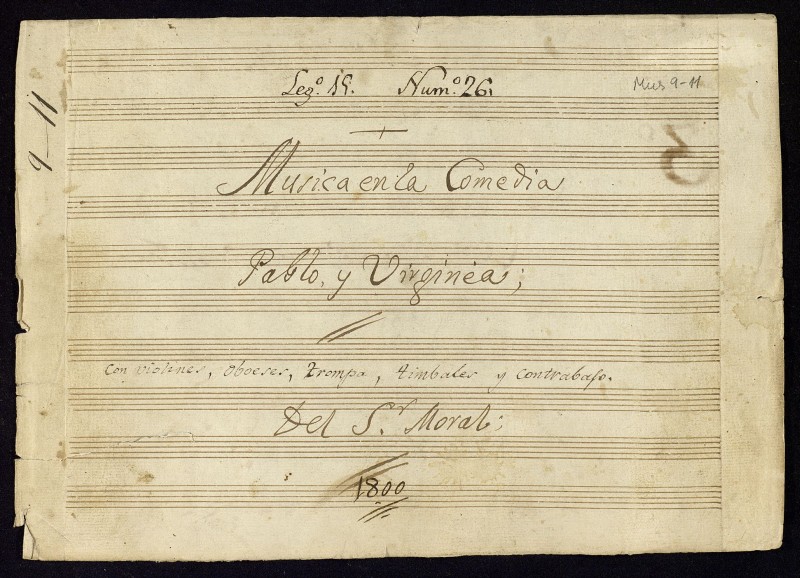 Leg.º 15. Num.º 26.
Mus 9-11
9-11
Musica en la Comedia
Pablo, y Virginia;
Con violines, oboeses, trompa, timbales y contrabajo.
Del S.r Moral;
1800